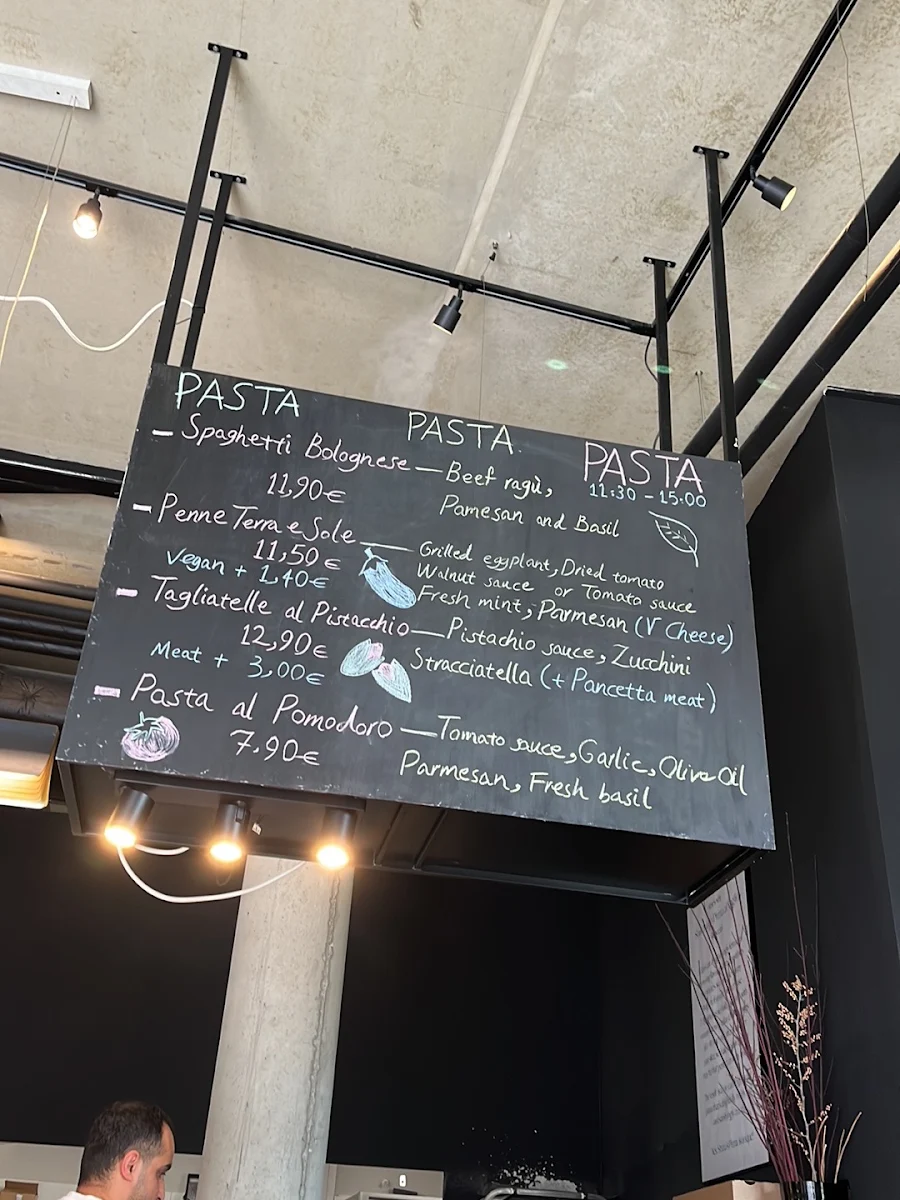 PASTA
PASTA
PASTA
11:30 - 15:00
- Spaghetti Bolognese — Beef ragù,
11,90€
Pamesan and Basil
- Penne Terra e Sole — Grilled eggplant, Dried tomato
11,50€
Walnut sauce or Tomato sauce
Vegan + 1,40€
Fresh mint, Parmesan (V Cheese)
- Tagliatelle al Pistacchio — Pistachio sauce, Zucchini
12,90€
Stracciatella (+ Pancetta meat)
Meat + 3,00€
- Pasta al Pomodoro — Tomato sauce, Garlic, Olive Oil
7.90€
Parmesan, Fresh basil